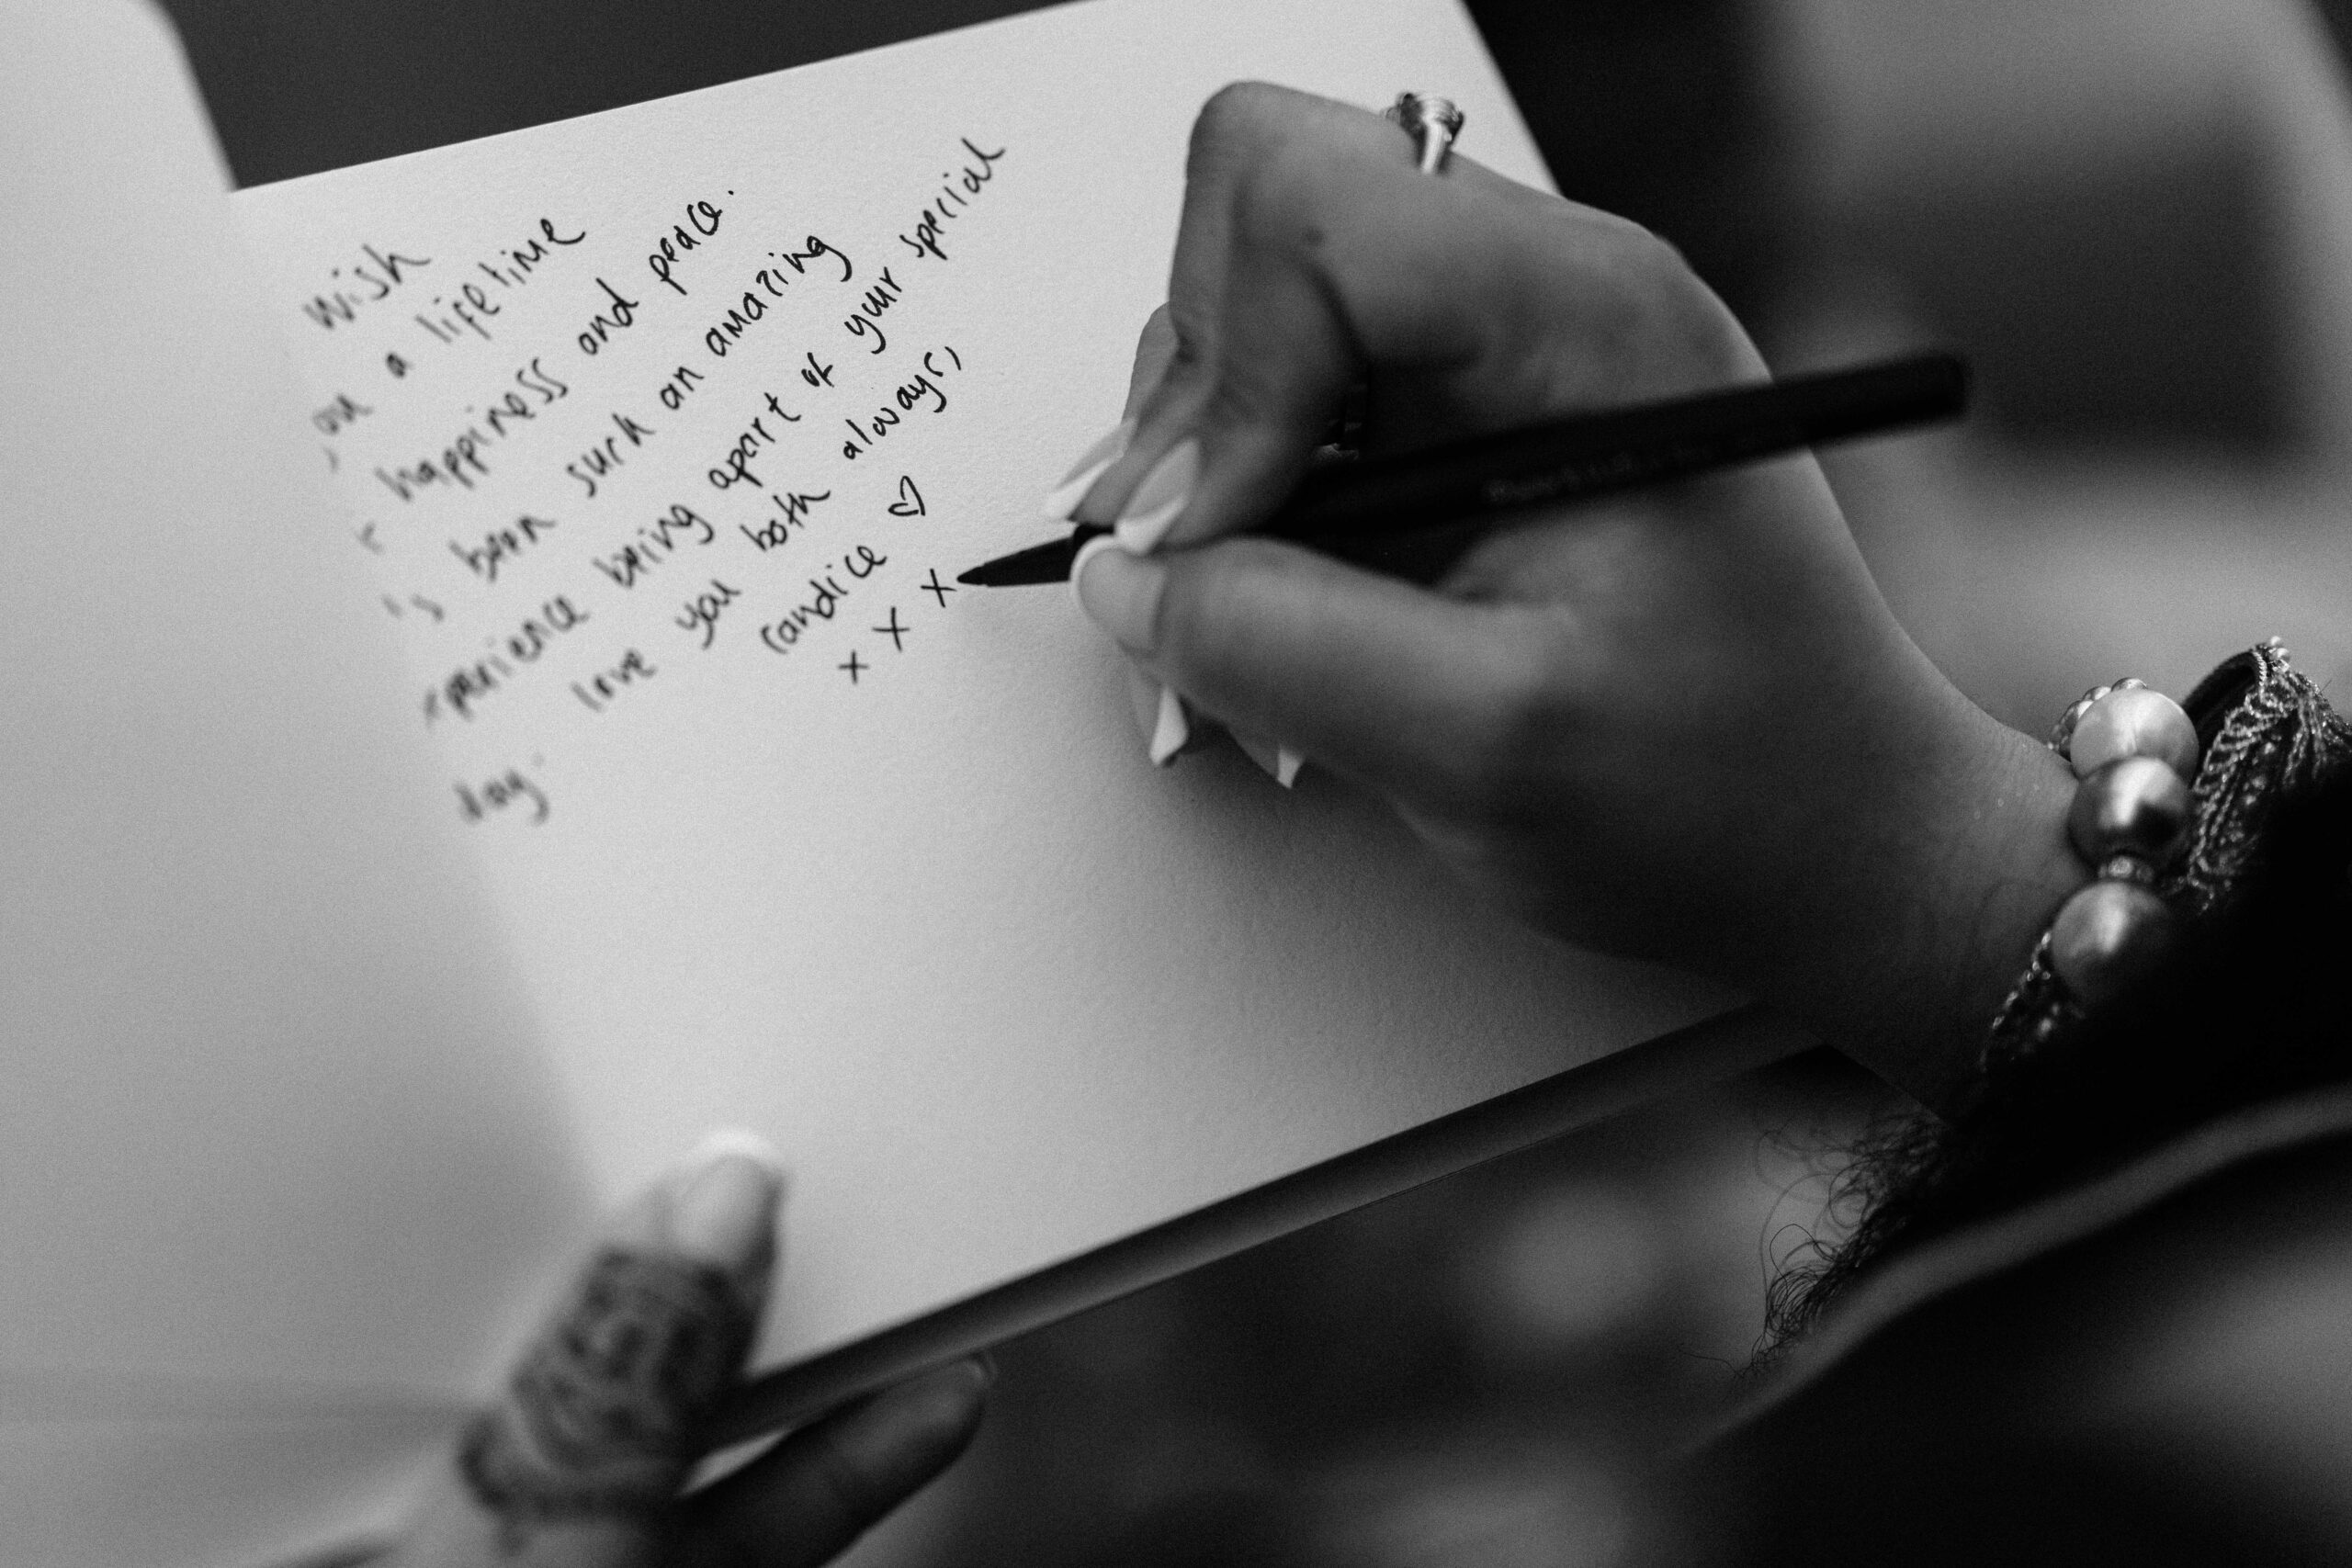 wish
a lifetime
happiness and peace.
been such an amazing
being apart of your special
day.
love you both always,
candice ♡
x x x